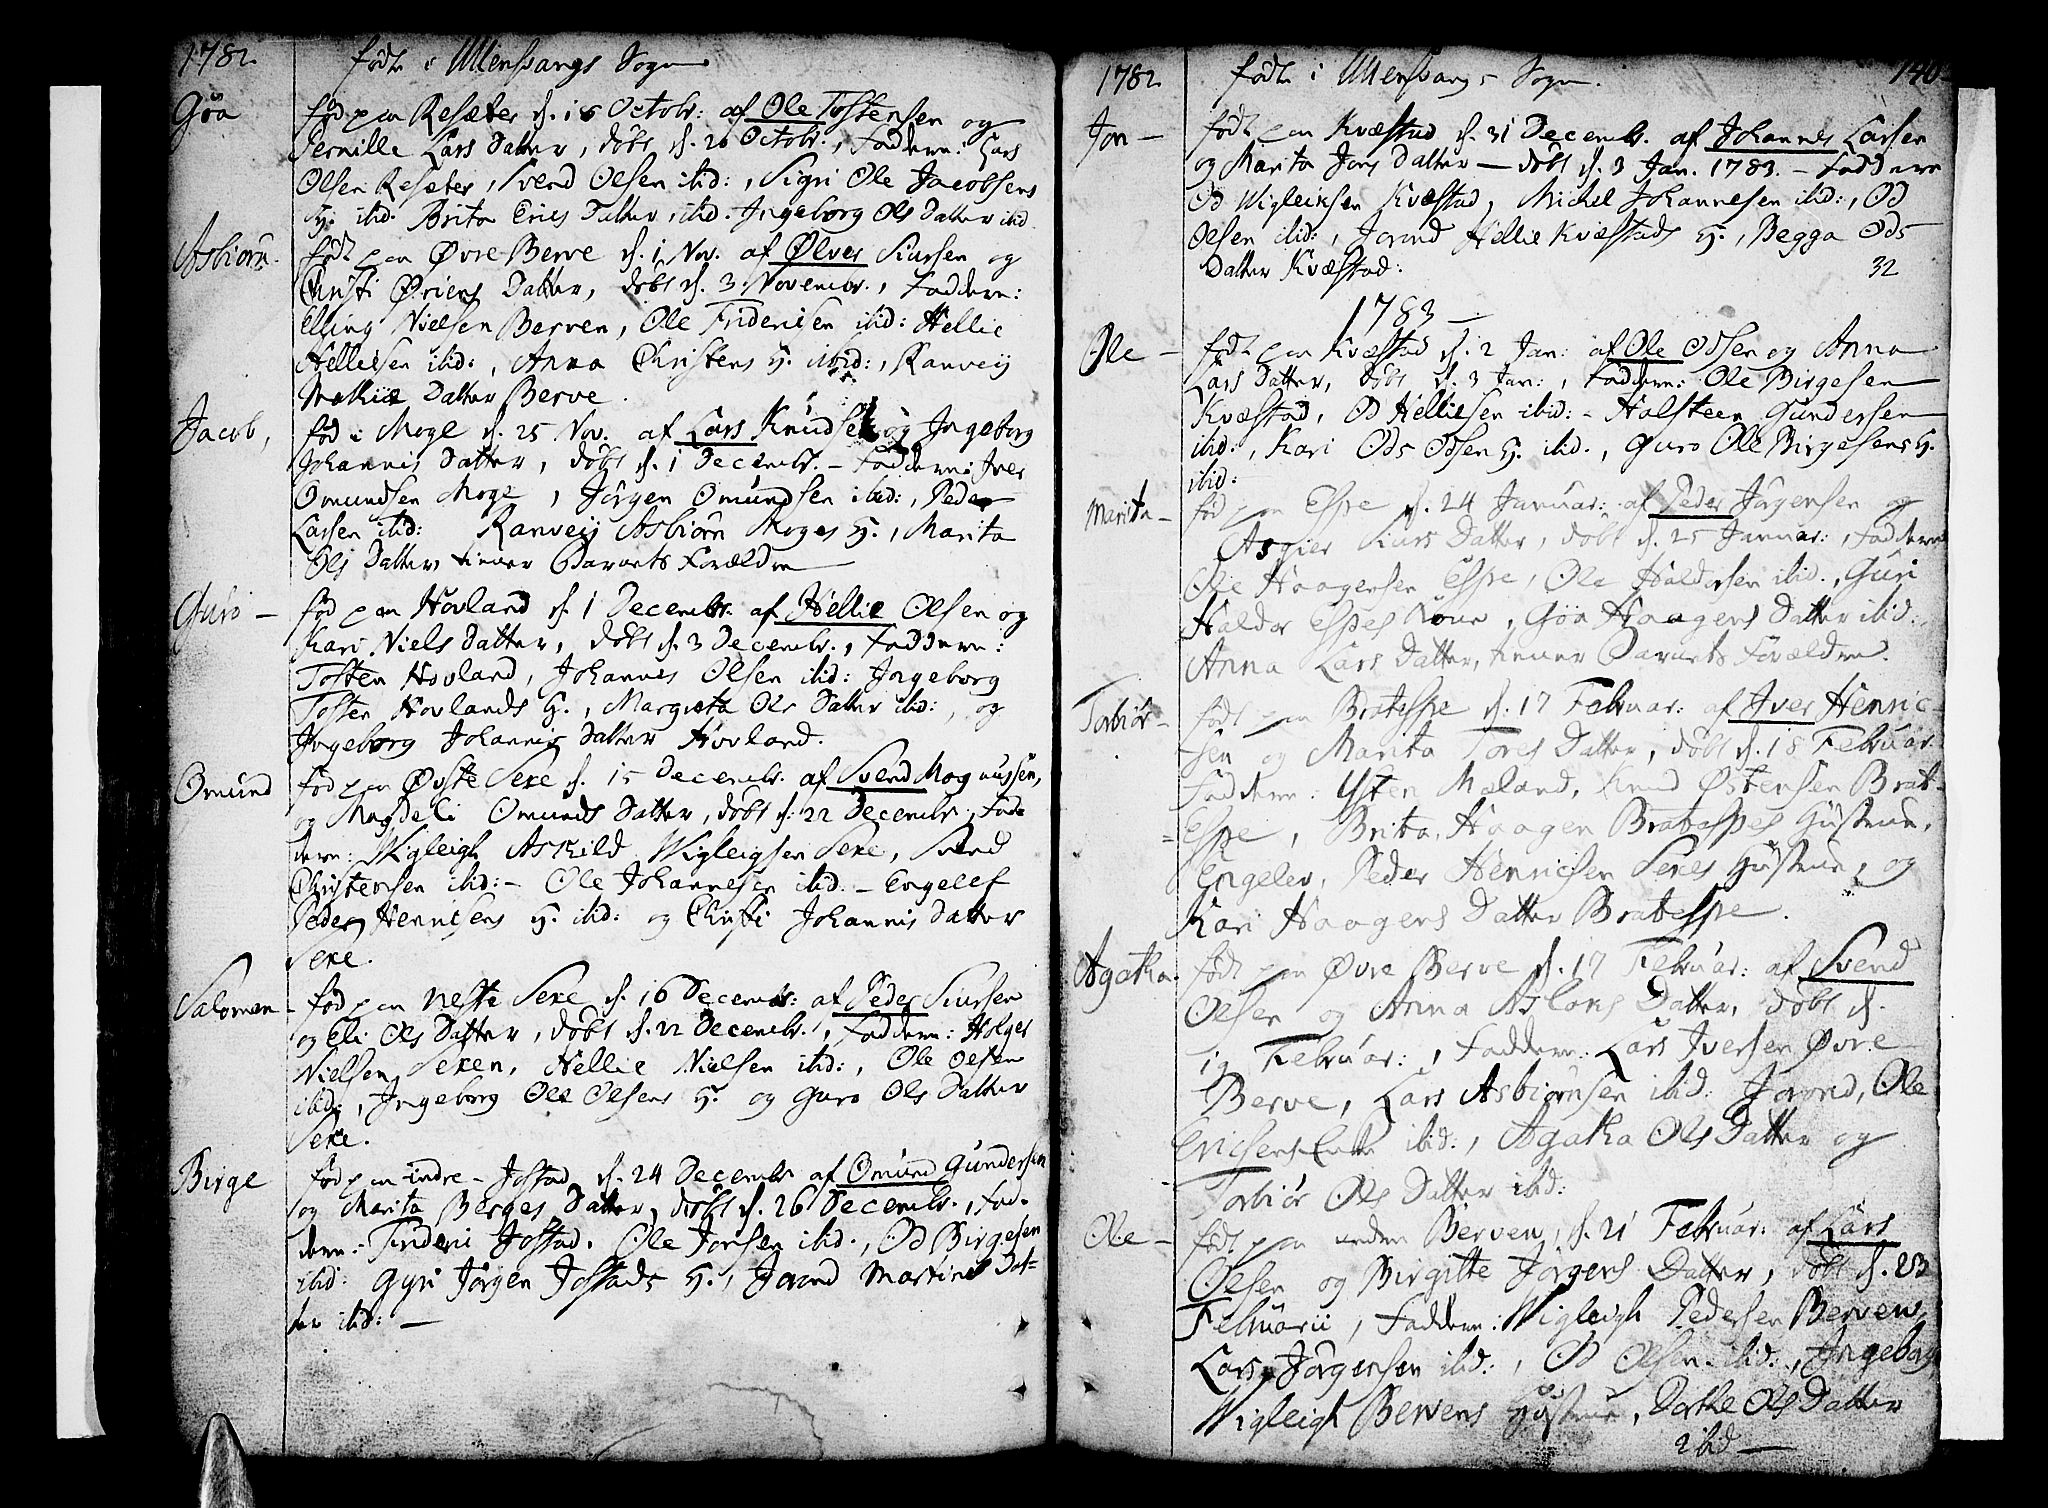 1782 födte i Ullensvangs Sogn
Göa föd paa Resæter d. 18 Octobr: af Ole Tostensen og
Pernille Lars Datter, döbt d. 20 Octobr., Faddere: Lars
Olsen Resæter, Svend Olsen ibid:, Sigri Ole Jacobsens
H. ibid. Brita Erics Datter, ibid. Ingeborg Ols Datter ibid
Asbiörn. födt paa Øvre Berve d. 1 Nov. af Ølver Siursen og
Christi Datter, döbt d. 3 Novembr., Faddere:
Elling Nielsen Berven, Ole Fridericsen ibid: Hellie
Helliesen ibid:, Anna Christens H. ibid:, Ranveij
Datter Berve.
Jacob, föd i Moge d. 25 Nov. af Lars Knudsen og Ingeborg
Johannis Datter, döbt d. 1 Decembr. - Faddere: Iver
Omundsen Moge, Jörgen Omundsen ibid:, Peder
Larsen ibid: Ranveij Asbiörn Moges H., Marita
Ols Datter, tiener Barnets Forældre
Guro - föd paa Hovland d. 1 Decembr. af Hellie Olsen og
Kari Niels Datter, döbt d. 3 Decembr., Faddere:
Tosten Hovland, Johannes Olsen ibid: Ingeborg
Tosten Hovlands H., Margreta Ols Datter ibid:, og
Ingeborg Johannis Datter Hovland.
Omund föd paa Øvste Sexe d. 15 Decembr. af Svend Magnussen,
og Magdeli Omunds Datter, döbt d: 22 Decembr, Fad-
dere: Wigleigh Askild Wigleigsen Sexe, Svend
Christensen ibid: - Ole Johannesen ibid. - Engelef
Peder Henricsens H. ibid: og Christi Johannis Datter
Sexe.
Salomon - föd paa Neste Sexe d. 16 Decembr: af Peder Siursen
og Eli Ols Datter, döbt d. 22 Decembr., Faddere: Holger
Nielsen Sexen, Hellie Nielsen ibid:, Ole Olsen
ibid:, Ingeborg Ole Olsens H. og Guro Ols Datter
Sexe.
Birge föd paa indre - Jostad d. 24 Decembr af Omund Gundersen
og Marita Berges Datter, döbt d. 26 Decembr., Fad-
dere: Frideric Jostad, Ole Jonsen ibid., Od Birgesen
ibid: Gyri Jörgen Jostads H., Jorand Martines Dat-
ter ibid: -
1782 födte i Ullensvangs Sogn. 140
Jon - födt paa Kvæstad d. 31 Decembr. af Johannes Larsen
og Marita Jons Datter - döbt d. 3 Jan. 1783. - Faddere
Od Wigleiksen Kvæstad, Michel Johannesen ibid:, Od
Olsen ibid:, Jorand Hellie Kvæstads H., Begga Ods
Datter Kvæstad: 32
1783 -
Ole - födt paa Kvæstad d. 2 Jan: af Ole Odsen og Anna
Lars Datter, döbt d. 3 Jan:, Faddere: Ole Birgesen
Kvæstad, Od Helliesen ibid: - Halsteen Gundersen
ibid:, Kari Ods Odsen H. ibid., Guro Ole Birgesens H.
ibid:
Marita - föd paa Espe d. 24 Januar: af Peder Jörgensen og
Asgier Siurs Datter, döbt d. 25 Januar:, Faddere
Ole Haagensen Espe, Ole Haldorsen ibid., Guri
Haldor Espes Kone, Göa Haagens Datter ibid:,
Anna Lars Datter, tiener Barnets Forældre.
Torbiör - födt paa Bratespe d. 17 Februar: af Iver Henric-
sen og Marita Tores Datter, döbt d. 18 Februar.
Faddere: Ysten Mæland, Knud Östensen Brat-
= Espe, Brita Haagen Bratespes Hustrue,
Engelev, Peder Henricsen Sexes Hustrue, og
Kari Haagens Datter Bratespe.
Agatha. födt paa Øvre Berve d. 17 Februar: af Svend
Olsen og Anna Aslaks Datter, döbt d.
19 Februar:, Faddere: Lars Iversen Øvre
Berve, Lars Asbiörnsen ibid: Jorond, Ole
Ericsens Enke ibid:, Agatha Ols Datter og
Torbiör Ols Datter ibid:
Ole - födt paa neden Berven, d. 21 Februar: af Lars
Olsen og Birgitte Jörgens Datter, döbt d. 23
Februarii, Faddere: Wigleigh Pedersen Berven,
Lars Jörgensen ibid:, Od Olsen ibid:, Ingeborg
Wigleigh Bervens Hustrue, Dorthe Ols Datter
ibid -